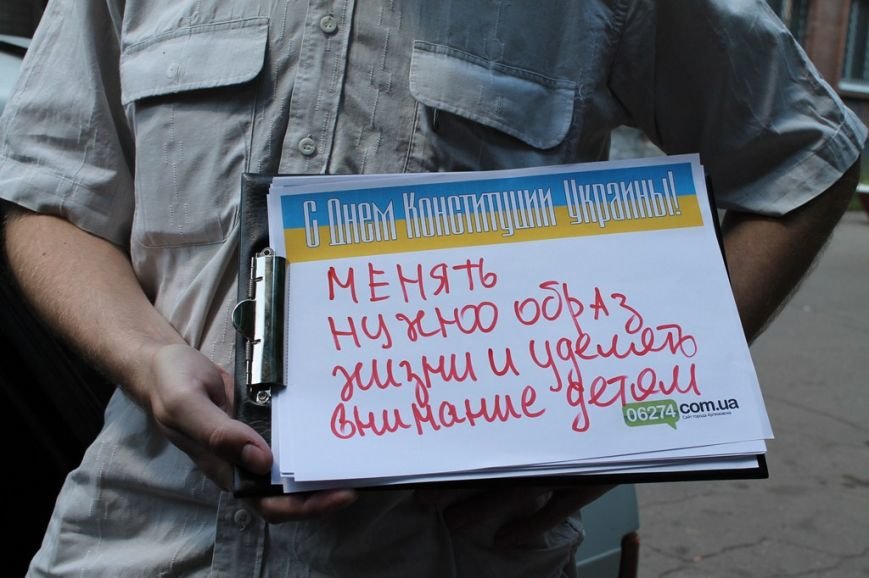 С Днем Конституции Украины!
МЕНЯТЬ
НУЖНО ОБРАЗ
жизни и уделять
внимание детям
06274 com.ua
Сайт города Артемовска